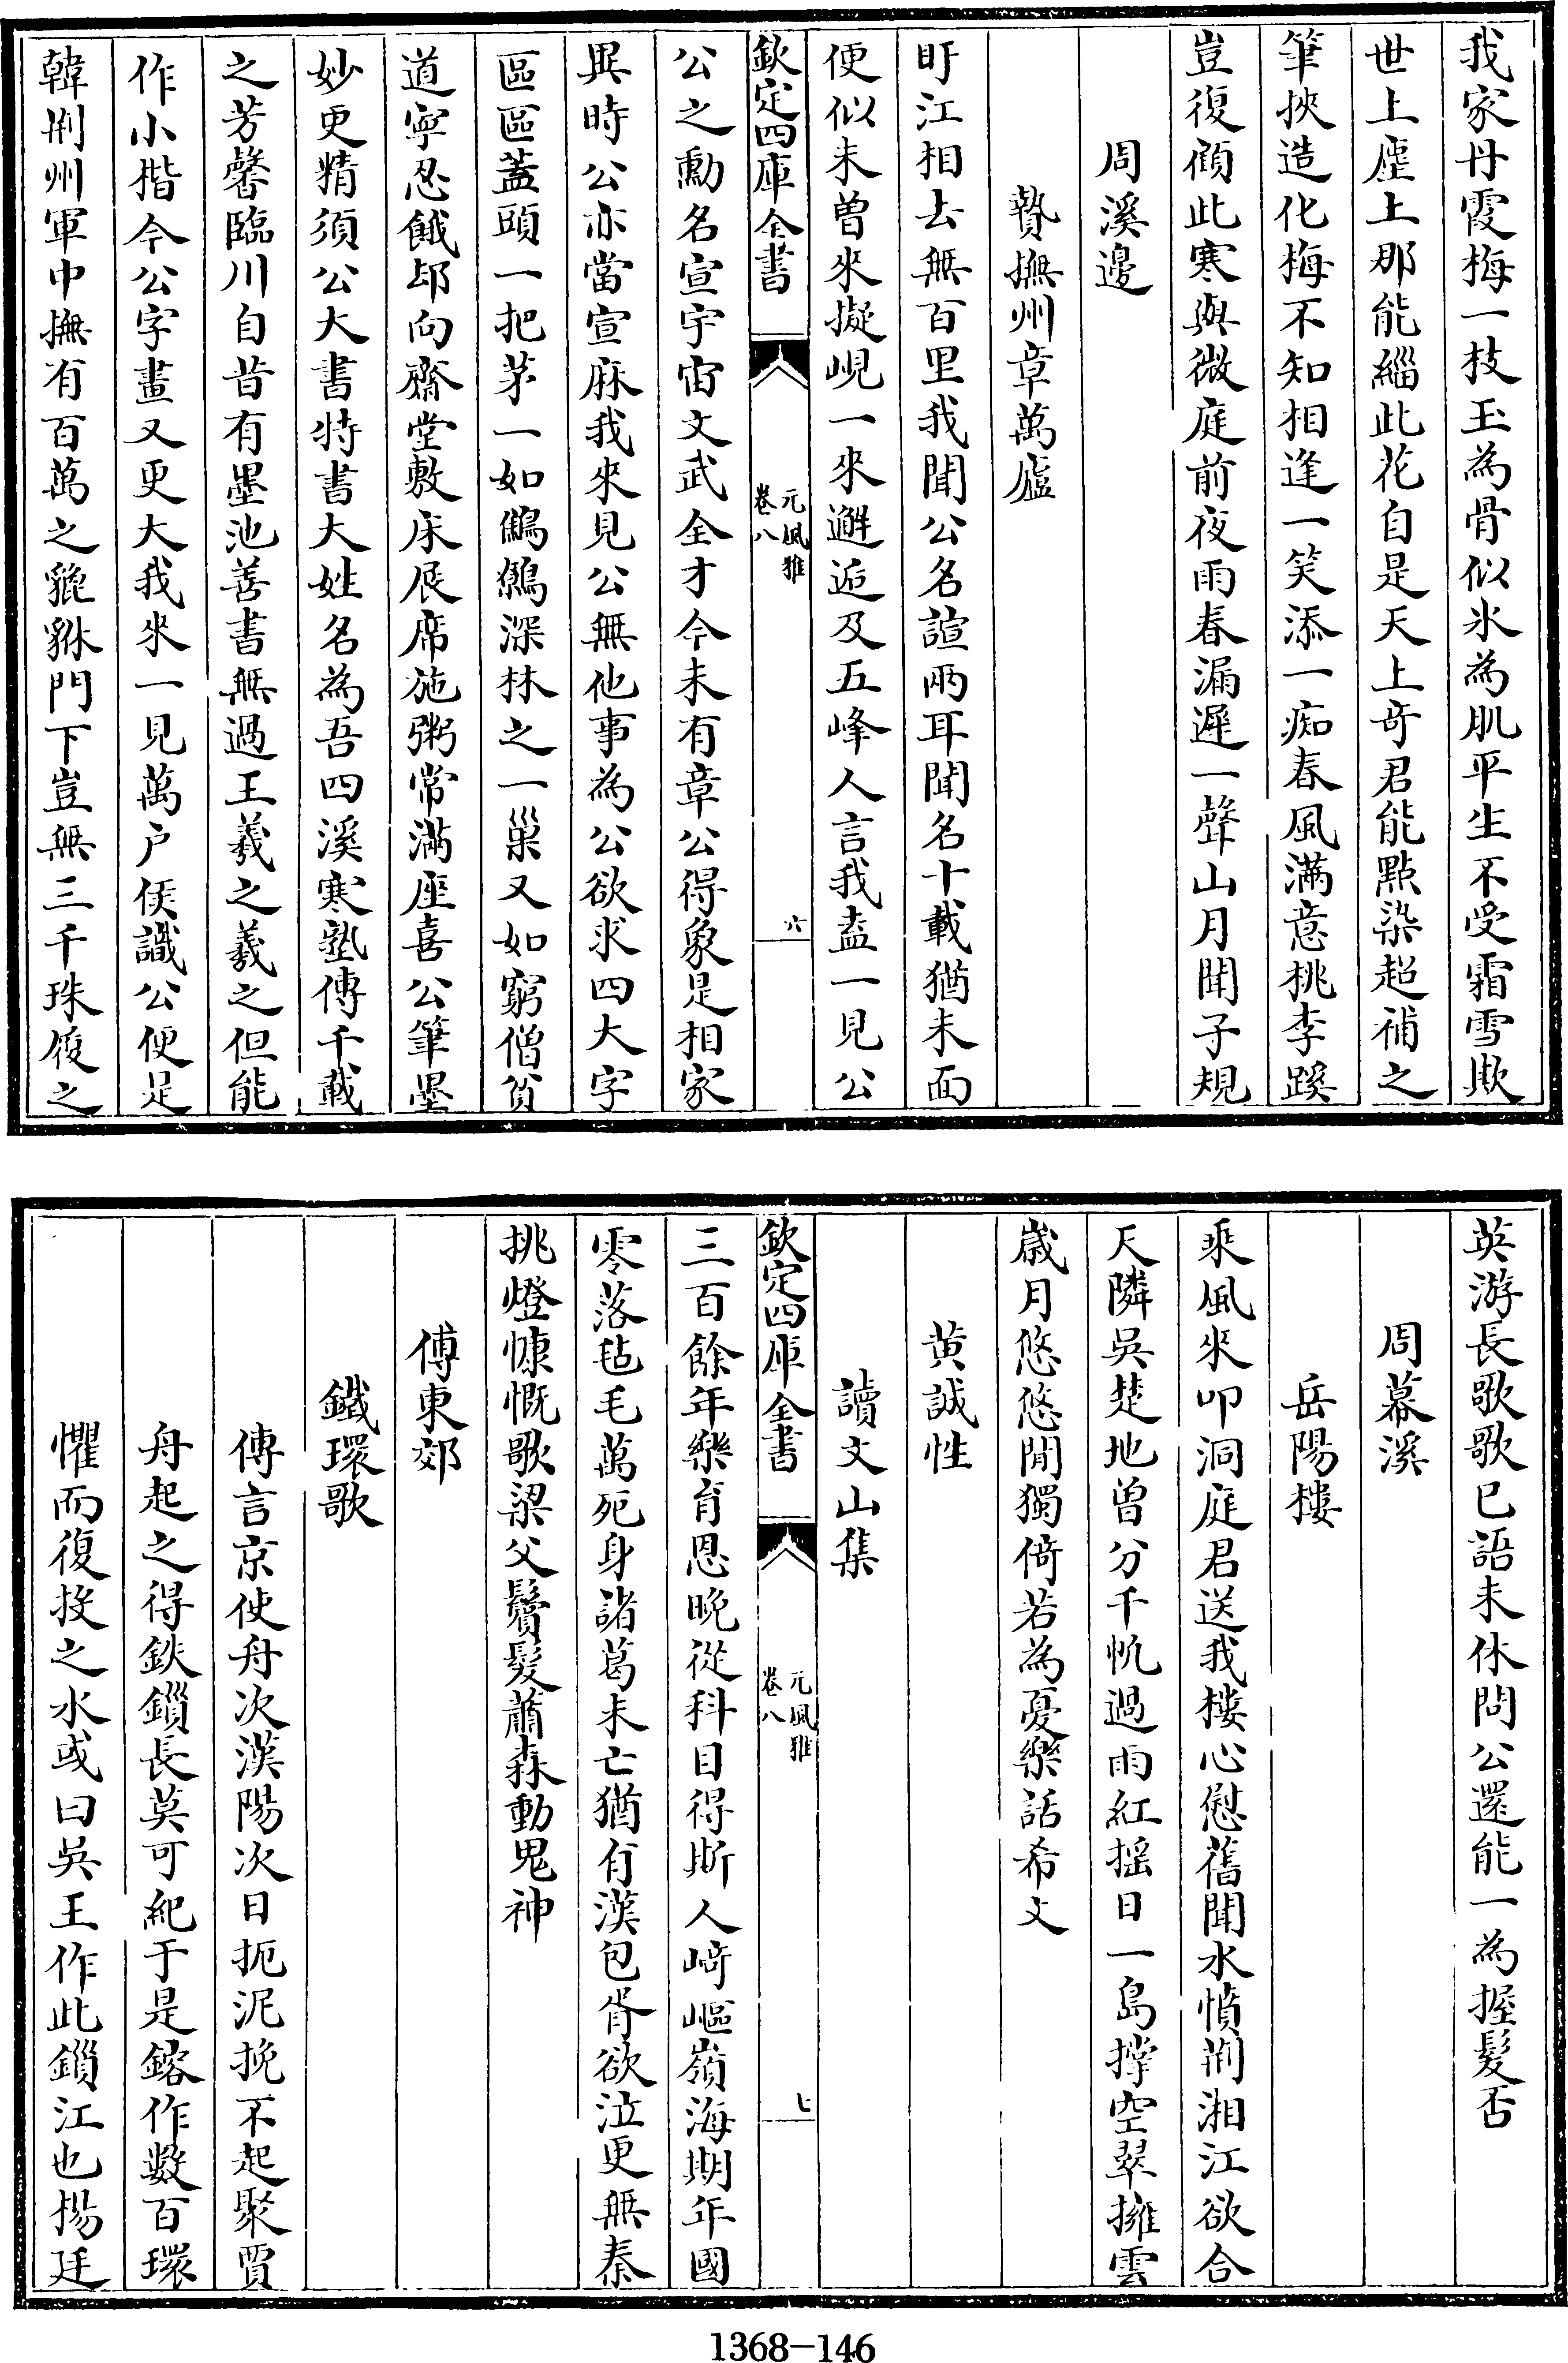 我家丹霞梅一枝玉為骨似氷為肌平生不受霜雪欺
世上塵上那能緇此花自是天上奇君能點染超補之
筆挾造化梅不知相逢一笑添一痴春風滿意桃李蹊
豈復顧此寒與微庭前夜雨春漏遲一聲山月聞子規
周溪邊
贄撫州章萬廬
盱江相去無百里我聞公名諠兩耳聞名十載猶未面
便似未曽來擬峴一來邂逅及五峰人言我盍一見公
欽定四庫全書
元風雅
卷八
六
公之勳名宣宇宙文武全才今未有章公得象是相家
異時公亦當宣麻我來見公無他事為公欲求四大字
區區蓋頭一把茅一如鷦鷯深林之一巢又如窮僧貧
道寜忍餓却向齋堂敷床展席施粥常滿座喜公筆墨
妙更精須公大書特書大姓名為吾四溪寒塾傳千載
之芳馨臨川自昔有墨池善書無過王羲之羲之但能
作小楷今公字畫又更大我來一見萬户侯識公便是
韓荆州軍中撫有百萬之貔貅門下豈無三千珠履之
英游長歌歌已語未休問公還能一為握髮否
周幕溪
岳陽樓
乘風來叩洞庭君送我樓心慰舊聞水憤荆湘江欲合
天隣吳楚地曽分千帆過雨紅摇日一島撑空翠擁雲
歳月悠悠閒獨倚若為憂樂話希文
黄誠性
讀文山集
欽定四庫全書
元風雅
卷八
七
三百餘年樂育恩晩從科目得斯人崎嶇嶺海期年國
零落毡毛萬死身諸葛未亡猶有漢包胥欲泣更無秦
挑燈慷慨歌梁父鬢髮蕭森動鬼神
傅東郊
鐵環歌
傳言京使舟次漢陽次日扼泥挽不起聚賈
舟起之得鉄鎻長莫可紀于是鎔作數百環
懼而復投之水或曰吳王作此鎻江也楊廷
1368-146